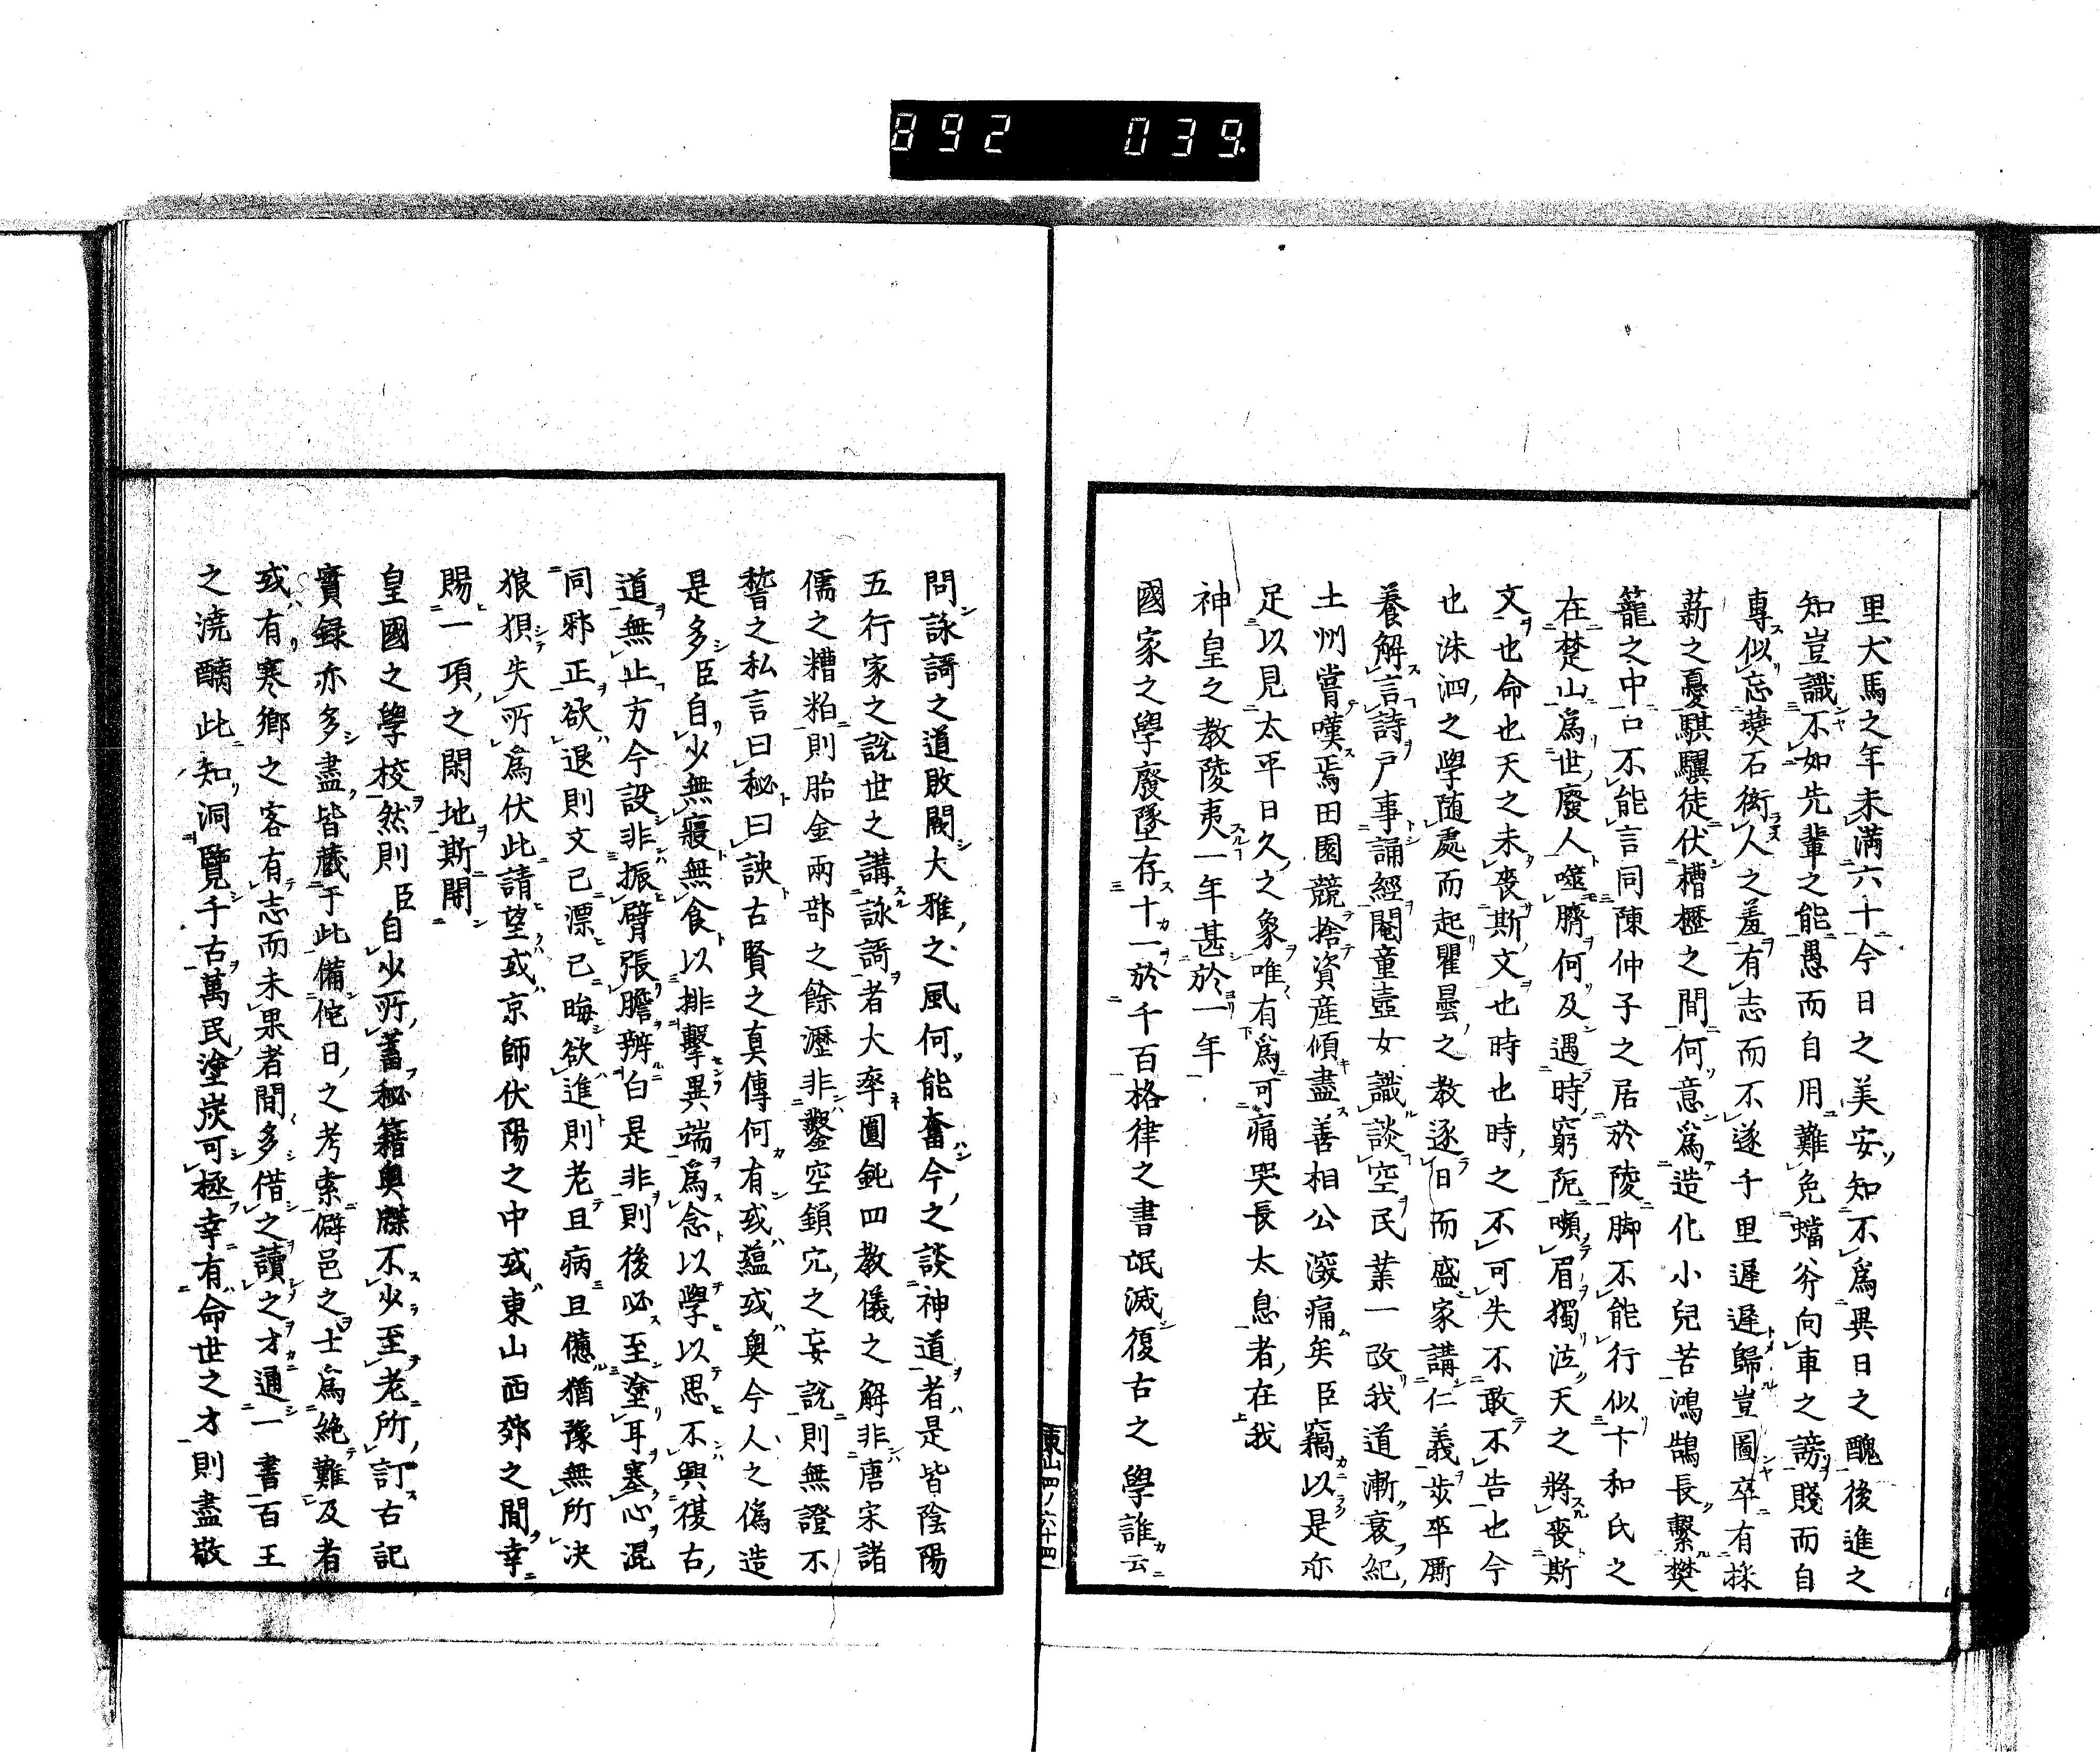 892 039
里犬馬之年未滿六十今日之美安知不爲異日之醜後進之
知豈識不如先輩之能愚而自用難免蟷斧向車之謗賤而自
專似忘燕石衒人之羞有志而不遂千里遲遲歸豈圖卒有採
薪之憂騏驥徒伏槽櫪之間何意爲造化小兒苦鴻鵠長繫樊
籠之中口不能言同陳仲子之居於陵脚不能行似卞和氏之
在楚山爲世廢人噬臍何及遇時窮阨嚬眉獨泣天之將喪斯
文也命也天之未喪斯文也時也時之不可失不敢不告也今
也洙泗之學随處而起瞿曇之教逐日而盛家講仁義步卒厮
養解言詩戸事誦經閹童壼女識談空民業一改我道漸衰紀
土州嘗嘆焉田園競捨資産傾盡善相公深痛矣臣竊以是亦
足以見太平日久之象唯有爲可痛哭長太息者在我
神皇之教陵夷一年甚於一年
國家之學廢墜存十一於千百格律之書泯滅復古之學誰云
東山四ノ六十四
問詠謌之道敗闕大雅之風何能奮今之談神道者是皆陰陽
五行家之說世之講詠謌者大率圓鈍四教儀之解非唐宋諸
儒之糟粕則胎金兩部之餘瀝非鑿空鎖穴之妄說則無證不
誓之私言曰秘曰訣古賢之真傳何有或蘊或奥今人之偽造
是多臣自少無寢無食以排擊異端爲念以學以思不興復古
道無止方今設非振臂張膽辨白是非則後必至塗耳塞心混
同邪正欲退則文已漂已晦欲進則老且病且憊猶豫無所决
狼狽失所爲伏此請望或京師伏陽之中或東山西郊之間幸
賜一項之閑地斯開
皇國之學校然則臣自少所蓄秘籍奥牒不少至老所訂古記
實録亦多盡皆蔵于此備他日之考索僻邑之士爲絶難及者
或有寒鄉之客有志而未果者間多借之讀之才通一書百王
之澆醨此知洞覽千古萬民塗炭可極幸有命世之才則盡敬